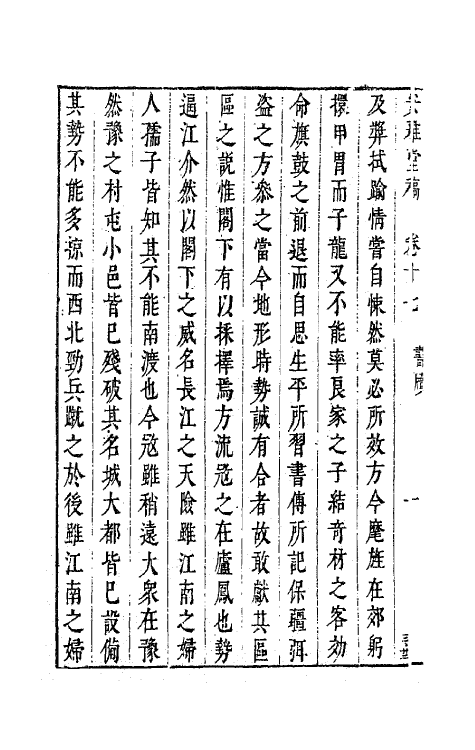 安雅堂稿　卷十七　書牘　一
及弊拭踰情嘗自悚然莫必所效方今麾旌在郊躬
擐甲胄而子龍又不能率良家之子結奇材之客効
命旗鼓之前退而自思生平所習書傳所記保疆弭
盜之方叅之當今地形時勢誠有合者故敢獻其區
區之説惟閣下有以採擇焉方流冦之在廬鳳也勢
逼江介然以閣下之威名長江之天險雖江南之婦
人孺子皆知其不能南渡也今冦雖稍遠大衆在豫
然豫之村屯小邑皆巳殘破其名城大都皆巳設僃
其勢不能多掠而西北勁兵蹴之於後雖江南之婦